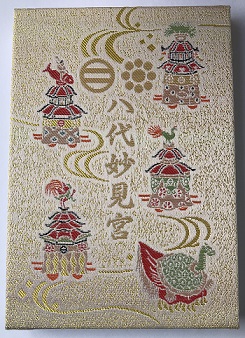 八代妙見宮